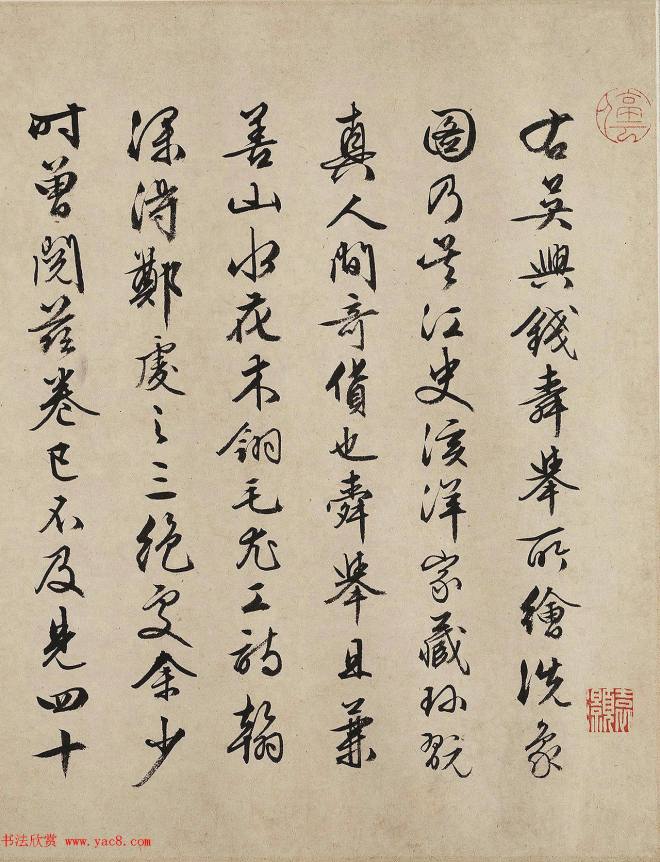 右吴興錢舜舉所繪洗象
圖乃吴江史溪洋家藏珎翫
真人間奇貨也舜舉且兼
善山水花木翎毛尤工詩翰
深得鄭虔之三絕受余少
时曽閲兹卷已不及見四十
书法欣赏 www.yac8.com